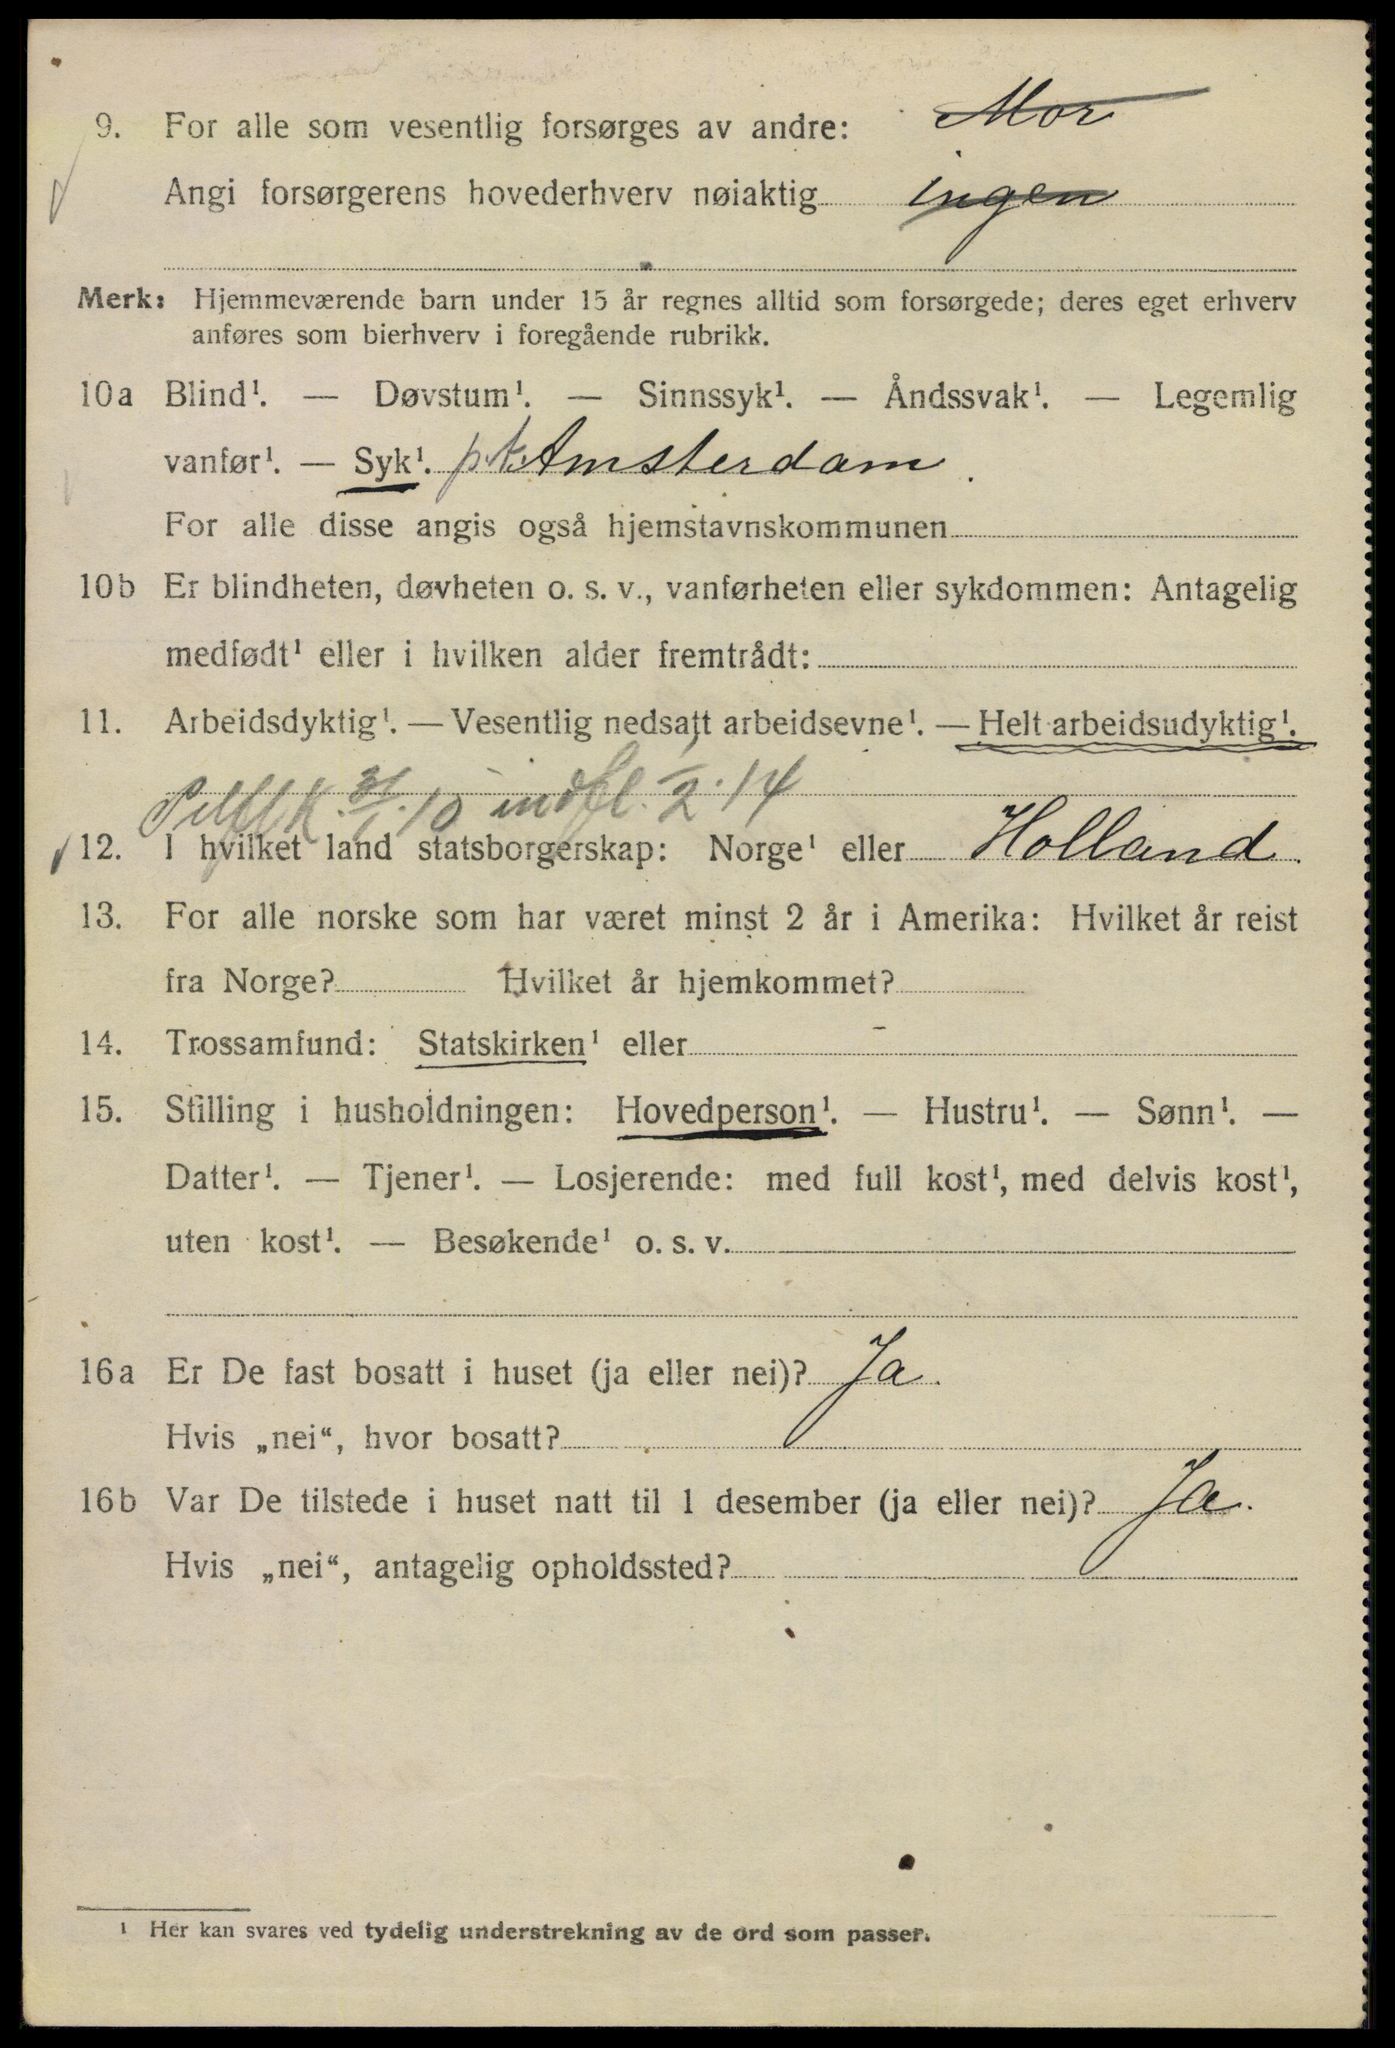 9. For alle som vesentlig forsørges av andre: Mor
Angi forsørgerens hovederhverv nøiaktig ingen
Merk: Hjemmeværende barn under 15 år regnes alltid som forsørgede; deres eget erhverv
anføres som bierhverv i foregående rubrikk.
10a Blind¹. — Døvstum¹. — Sinnssyk¹. — Åndssvak¹. — Legemlig
vanfør¹. — Syk¹. Amsterdam.
For alle disse angis også hjemstavnskommunen
10b Er blindheten, døvheten o. s. v., vanførheten eller sykdommen: Antagelig
medfødt¹ eller i hvilken alder fremtrådt:
11. Arbeidsdyktig¹. — Vesentlig nedsatt arbeidsevne¹. — Helt arbeidsudyktig¹.
10 indfl. 2.14
12. I hvilket land statsborgerskap: Norge¹ eller Holland.
13. For alle norske som har været minst 2 år i Amerika: Hvilket år reist
fra Norge? Hvilket år hjemkommet?
14. Trossamfund: Statskirken¹ eller
15. Stilling i husholdningen: Hovedperson¹. — Hustru¹. — Sønn¹. —
Datter¹. — Tjener¹. — Losjerende: med full kost¹, med delvis kost¹,
uten kost¹. — Besøkende¹ o. s. v.
16a Er De fast bosatt i huset (ja eller nei)? Ja.
Hvis „nei“, hvor bosatt?
16b Var De tilstede i huset natt til 1 desember (ja eller nei)? Ja.
Hvis „nei“, antagelig opholdssted?
¹ Her kan svares ved tydelig understrekning av de ord som passer.